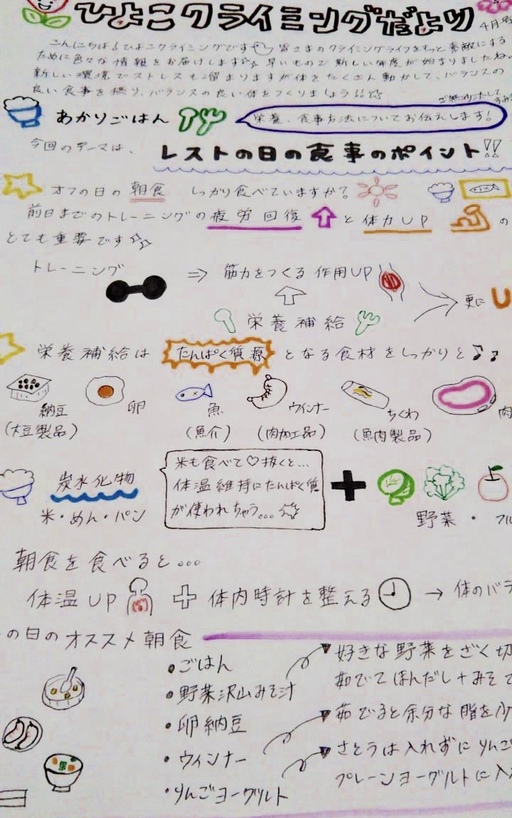 ひよこクライミングだより
4月号
こんにちは！ひよこクライミングです 皆さまのクライミングライフをもっと素敵にする
ために色々な情報をお届けします 早いもので新しい年度が始まりましたね
新しい環境でストレスも溜まりますが体をたくさん動かして、バランスの
良い食事を摂り、バランスの良い体をつくりましょう!!
あかりごはん
栄養、食事方法についてお伝えします！
今回のテーマは、
レストの日の食事のポイント!!
オフの日の朝食 しっかり食べていますか？
前日までのトレーニングの疲労回復 と 体力UP の
とても重要です
トレーニング ⇒ 筋力をつくる作用UP
更に
栄養補給
栄養補給は たんぱく質源 となる食材をしっかりと♪♪
納豆 卵 魚 ウインナー ちくわ 肉
(大豆製品) (魚介) (肉加工品) (魚肉製品)
炭水化物
米・めん・パン
米も食べて♡抜くと…
体温維持にたんぱく質
が使われちゃう…
+
野菜・フル
朝食を食べると…
体温UP + 体内時計を整える → 体のバラ
の日のオススメ朝食
・ごはん
・野菜沢山みそ汁
・卵納豆
・ウィンナー
・りんごヨーグルト
好きな野菜をざく切
茹でてほんだし+みそで
茹でると余分な脂を
さとうは入れずにりんご
プレーンヨーグルトに入